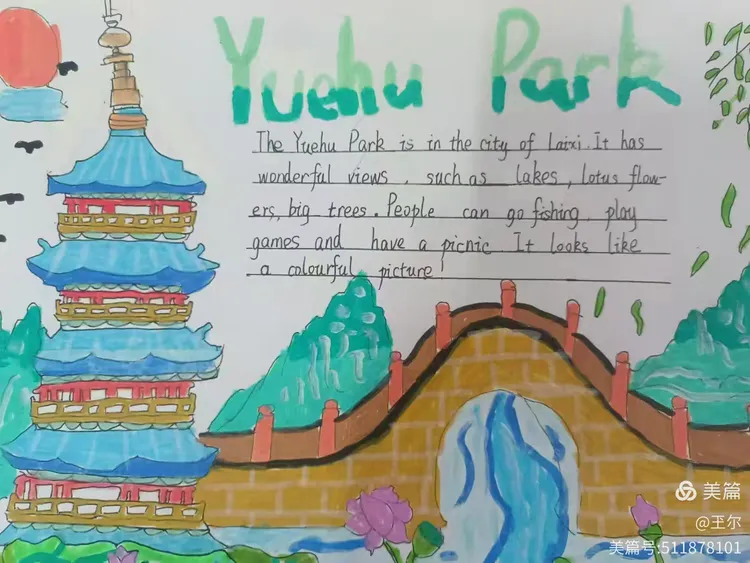 Yuehu Park
The Yuehu Park is in the city of Laixi. It has
wonderful views, such as lakes, lotus flow-
ers, big trees. People can go fishing, play
games and have a picnic. It looks like
a colourful picture!
美篇
@王尔
美篇号:511878101